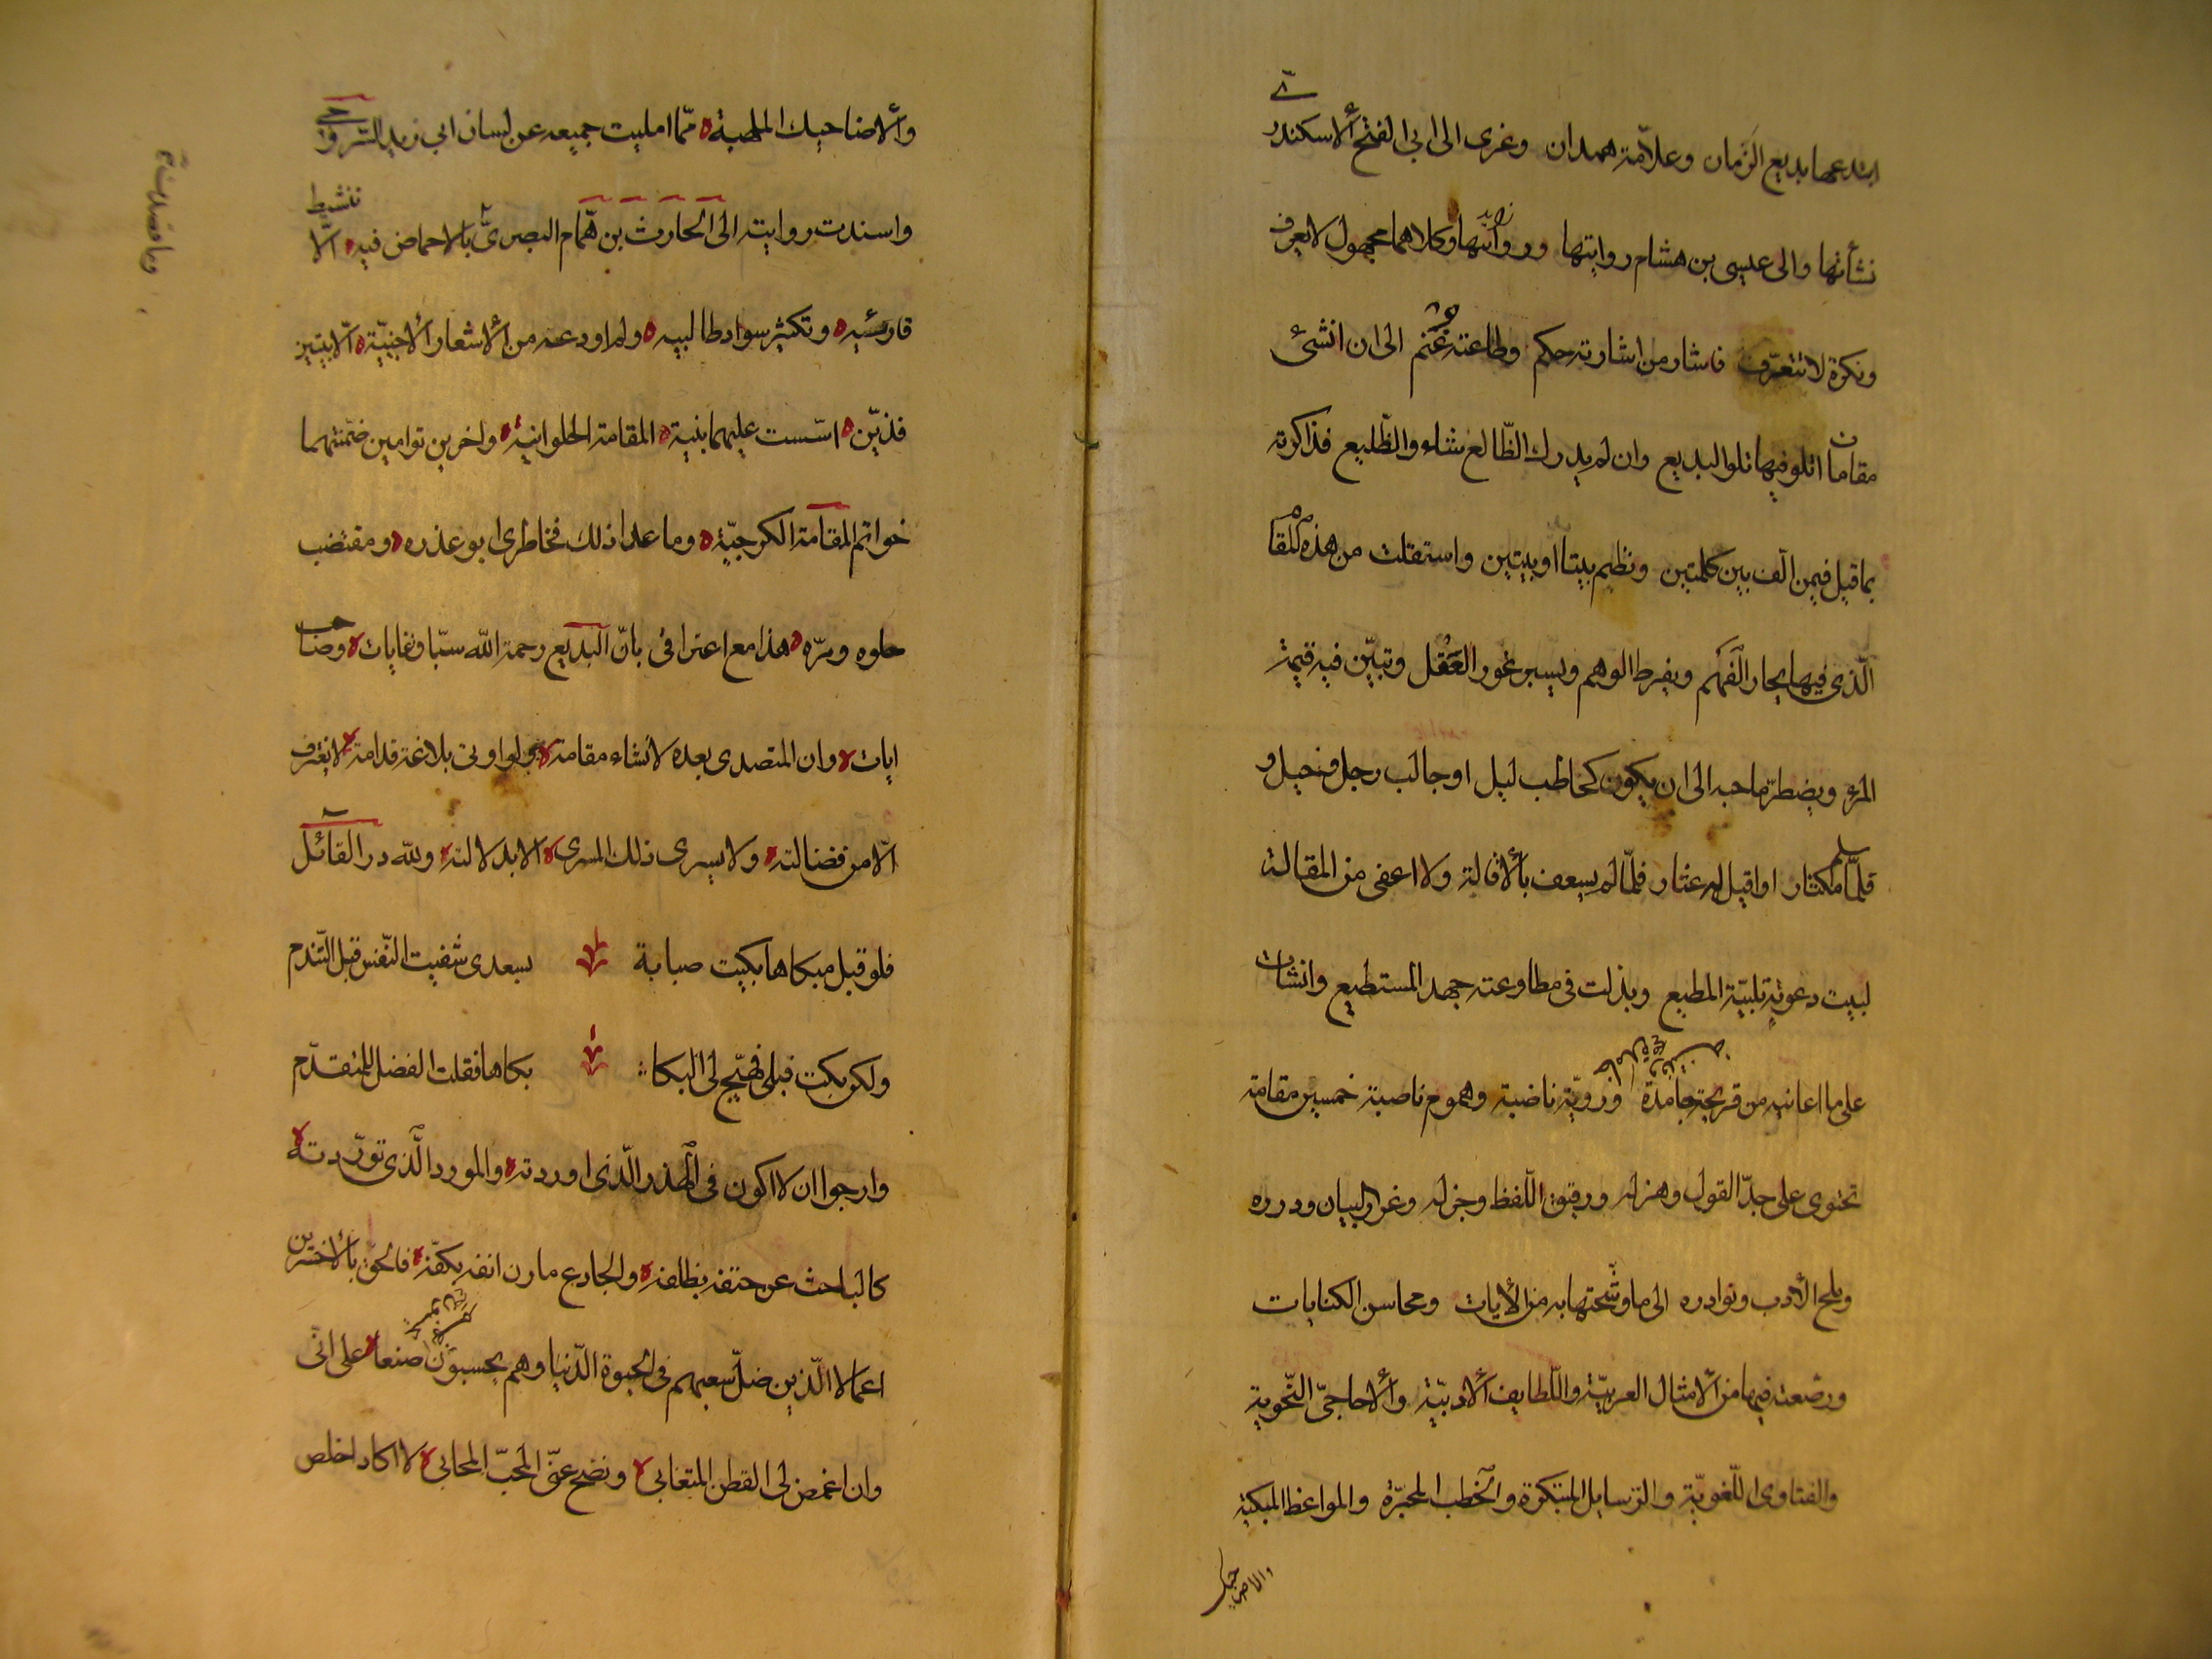 ابتدعها بديع الزمان وعلّامة همدان وعزى الى ابي الفتح الاسكندرىّ
نشأتها والى عيسى بن هشام روايتها وكلاهما مجهول لا يعرف
ونكرة لا تتعرّف فاشار من اشارته حكم وطاعته غنم الى ان انشئ
مقامات اتلو فيها تلو البديع وان لم يدرك الظّالع شاء والظّليع فذاكرته
بما قيل فيمن الّف بين كلمتين ونظم بيتا او بيتين واستقلت من هذه المقامة
الّذى فيها يحار الفهم ويفرط الوهم ويسبر غور العقل وتبيّن فيه قيمة
المرء ويضطرّ صاحبه الى ان يكون كحاطب ليل او جالب رجل وخيل و
قلّما سلم مكثار او اقيل له عثار فلمّا لم يسعف بالاقالة ولا اعفى من المقالة
لبيت دعوته تلبيّة المطيع وبذلت فى مطاوعته جهد المستطيع وانشات
على ما اعانيه من قريحة جامدة ورويّة ناضبة وهموم ناصبة خمسين مقامة
تحتوى على جدّ القول وهزله ورقيق اللّفظ وجزله وغرر البيان ودرره
وملح الأدب ونوادره الى ما وشّحتها به من الأيات ومحاسن الكنايات
ورصّعته فيها من الامثال العربيّة واللّطايف الادبيّة والاحاجىّ النّحوية
والفتاوى اللّغويّة والرّسايل المبتكرة والخطب المحبّرة والمواعظ المبكية
والاضاحيك
والاضاحيك الملهية ممّا امليت جميعه عن لسان ابي زيد السّروجى
واسندت روايته الى الحارث بن همّام البصرىّ بالاحماض فيه الّا تنشيط
قارئيه وتكثير سواد طالبيه ولم اودعه من الاشعار الاجنبيّة الّا بيتين
فذيّن اسّست عليهما بنية المقامة الحلوانية واخرين توامين ضمّنتهما
خواتم المقامة الكرجيّة وما عدا ذلك فخاطرى ابو عذره ومقتضب
حلوه ومرّه هذا مع اعترافى بانّ البديع رحمة الله سبّاق غايات وصاحب
ايات وان المتصدى بعده لانشاء مقامة ولو اوتى بلاغة قدامة لا يغترف
الّا من فضالته ولا يسرى ذلك المسرى الا بدلالته ولله در القائل
فلو قبل مبكاها بكيت صبابة بسعدى شفيت النّفس قبل التّندم
ولكن بكت قبلى فهيّج لى البكا بكاها فقلت الفضل للمتقدّم
وارجوا ان لا اكون فى الهذر الّذى اوردته والمورد الّذى تورّدته
كالباحث عن حتفه بظلفه والجادع مارن انفه بكفّه فالحق بالاخسرين
اعمالا الّذين ضلّ سعيهم فى الحيوة الدّنيا وهم يحسبون انهم يحسنون صنعا على انّى
وان اغمض لى الفطن المتغابى ونضح عنّى المحبّ المحابى لا اكاد اخلص